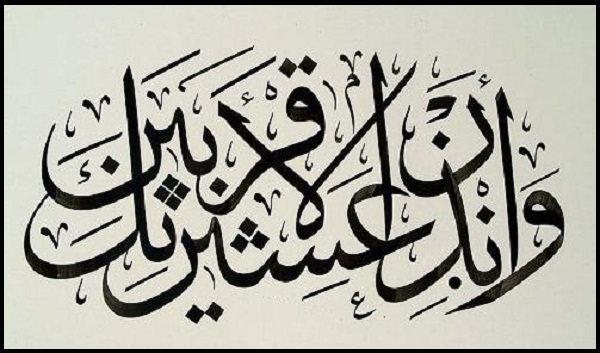 وَأَنذِرْ عَشِيرَتَكَ الْأَقْرَبِينَ